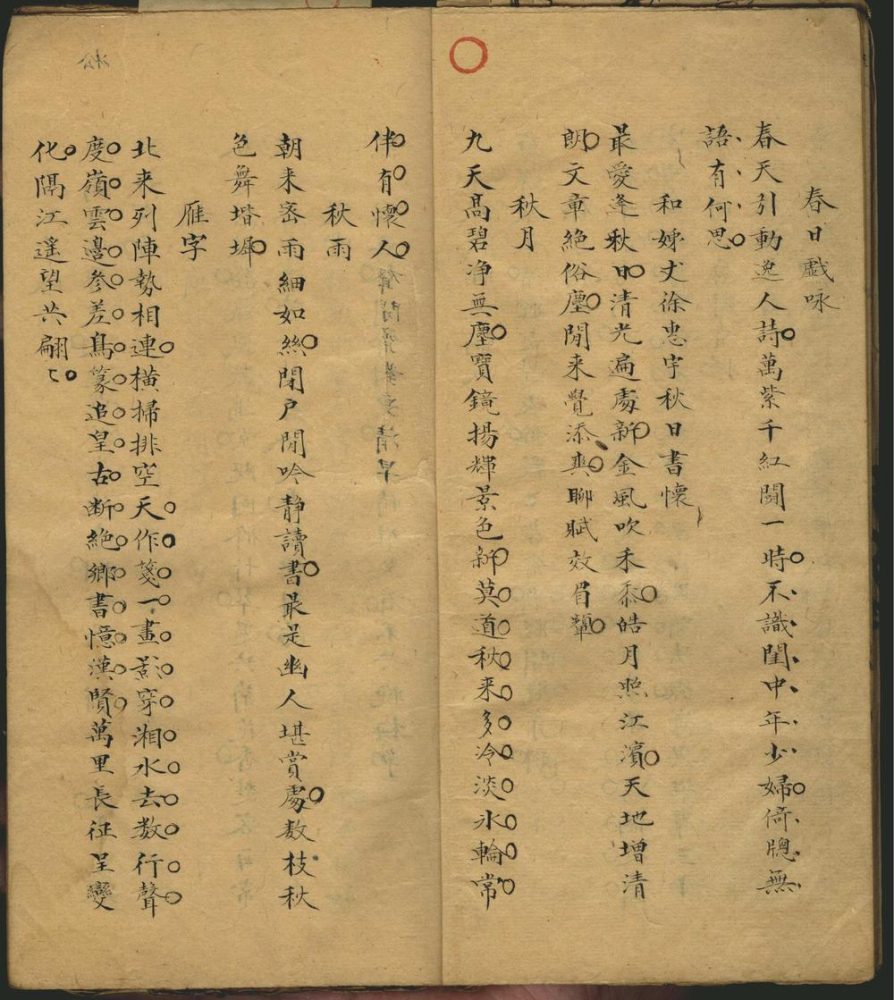 春日戲咏
春天引動逸人詩萬紫千紅鬪一時不識閨中年少婦倚牕無
語有何思
和姊丈徐忠宇秋日書懷
最愛逢秋日清光遍處新金風吹禾黍皓月照江濱天地增清
朗文章絕俗塵閒来覺添興聊賦效眉顰
秋月
九天高碧净無塵寶鏡揚輝景色新莫道秋来多冷淡氷輪常
伴有懷人
秋雨
朝来密雨細如絲閉户閒吟静讀書最是幽人堪賞處数枝秋
色舞堦墀
雁字
北来列陣勢相連橫掃排空天作箋一畫影穿湘水去数行聲
度嶺雲邊參差鳥篆追皇古断絶鄉書憶漢賢萬里長征呈變
化隔江遥望共翩〻